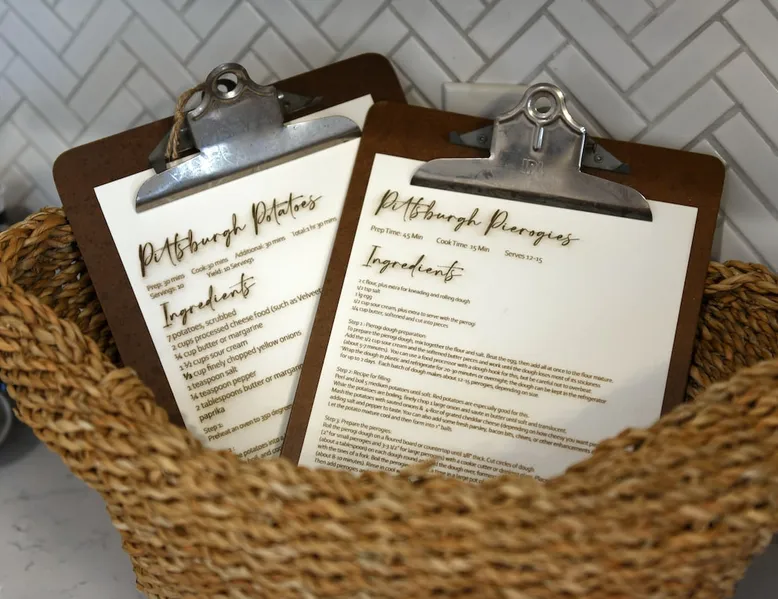 Pittsburgh Potatoes
Prep: 30 mins Cook:30 mins Additional: 30 mins Total:1 hr 30 mins
Servings: 10 Yield: 10 Servings
Ingredients
7 potatoes, scrubbed
2 cups processed cheese food (such as Velveet
¼ cup butter or margarine
1 ½ cups sour cream
½ cup finely chopped yellow onions
1 teaspoon salt
¼ teaspoon pepper
2 tablespoons butter or margarine
paprika
Step 1:
Preheat an oven to 350 degree
potatoes into a
Pittsburgh Pierogies
Prep Time: 45 Min Cook Time 15 Min Serves 12-15
Ingredients
2 c flour, plus extra for kneading and rolling dough
1/2 tsp salt
1 lg egg
1/2 cup sour cream, plus extra to serve with the pierogi
1/4 cup butter, softened and cut into pieces
Step 1 : Pierogi dough preparation:
To prepare the pierogi dough, mix together the flour and salt. Beat the egg, then add all at once to the flour mixture.
Add the 1/2 cup sour cream and the softened butter pieces and work until the dough loses most of its stickiness
(about 5-7 minutes). You can use a food processor with a dough hook for this, but be careful not to overbeat.
Wrap the dough in plastic and refrigerate for 20-30 minutes or overnight; the dough can be kept in the refrigerator
for up to 2 days. Each batch of dough makes about 12-15 pierogies, depending on size.
Step 2: Recipe for filling:
Peel and boil 5 medium potatoes until soft. Red potatoes are especially good for this.
While the potatoes are boiling, finely chop 1 large onion and sauté in butter until soft and translucent.
Mash the potatoes with sauteed onions & 4-8oz of grated cheddar cheese (depending on how cheesy you want
adding salt and pepper to taste. You can also add some fresh parsley, bacon bits, chives, or other enhancements
Let the potato mixture cool and then form into 1" balls.
Step 3: Prepare the pierogies:
Roll the pierogi dough on a floured board or countertop until 1/8" thick. Cut circles of dough
(2" for small pierogies and 3-3 1/2" for large pierogies) with a cookie cutter or drinking
(about a tablespoon) on each dough round and fold the dough over, forming
with the tines of a fork.
(about 8-10 minutes).